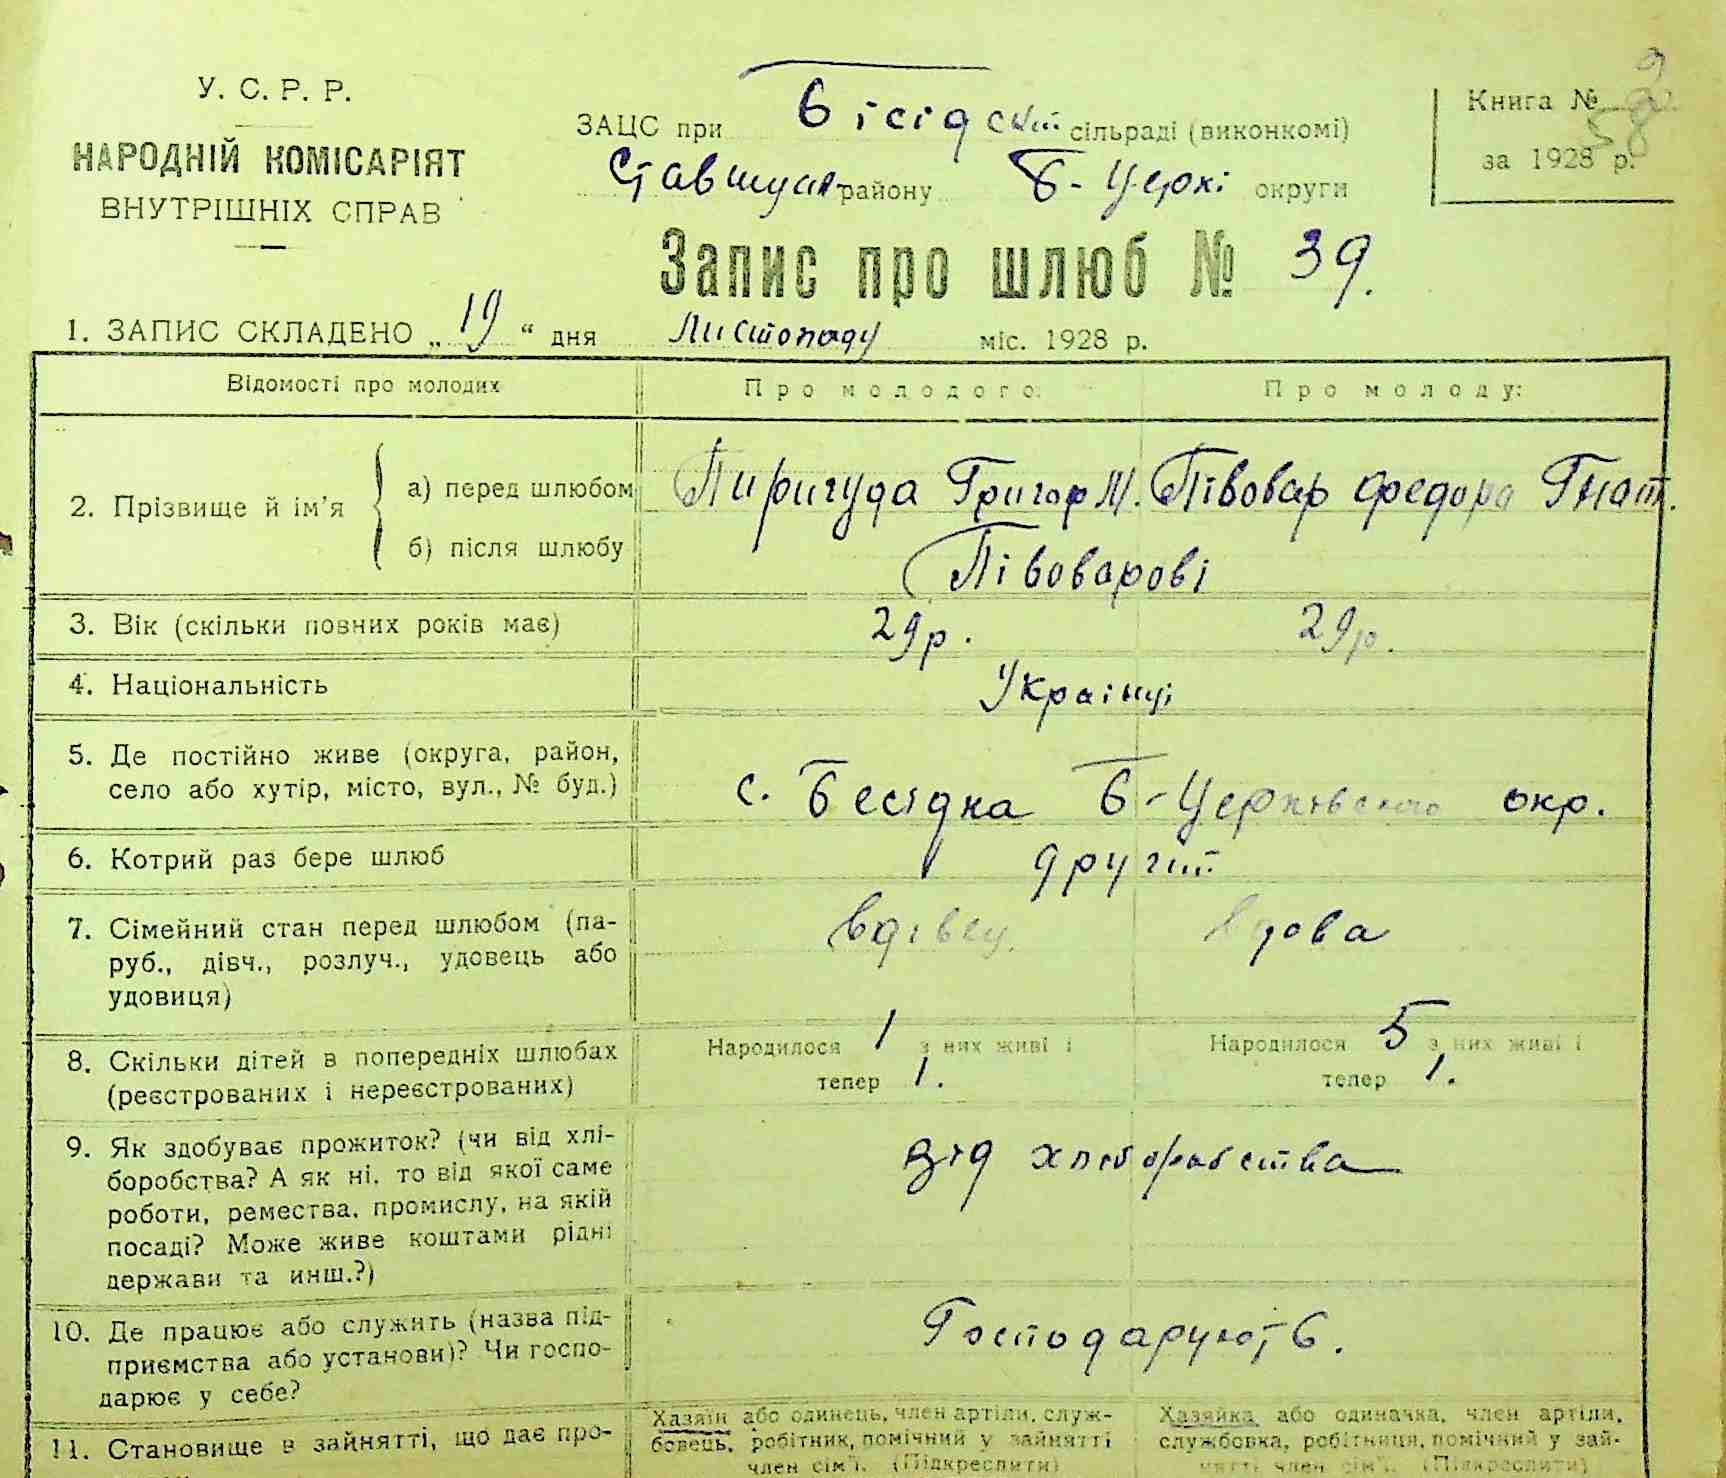 У. С. Р. Р.
НАРОДНІЙ КОМІСАРІЯТ
ВНУТРІШНІХ СПРАВ
ЗАЦС при Бісідській сільраді (виконкомі)
району Б-Церкі округи
Книга №
за 1928 р.
Запис про шлюб № 39.
1. ЗАПИС СКЛАДЕНО „ 19 “ дня Листопаду міс. 1928 р.
Відомості про молодих Про молодого: Про молоду:
2. Прізвище й ім’я а) перед шлюбом Пиригуда Григор М. Півовар Федора Гнат.
б) після шлюбу Півоварові
3. Вік (скільки повних років має) 29 р. 29 р.
4. Національність Українці
5. Де постійно живе (округа, район,
село або хутір, місто, вул., № буд.) с. Бесідка Б-Церківського окр.
6. Котрий раз бере шлюб другий
7. Сімейний стан перед шлюбом (па-
руб., дівч., розлуч., удовець або
удовиця) вдівец. вдова
8. Скільки дітей в попередніх шлюбах
(реєстрованих і нереєстрованих)
Народилося 1 з них живі і
тепер 1.
Народилося 5 з них живі і
тепер 1.
9. Як здобуває прожиток? (чи від хлі-
боробства? А як ні, то від якої саме
роботи, ремества, промислу, на якій
посаді? Може живе коштами рідні
держави та инш.?)
від хліборобства
10. Де працює або служить (назва під-
приємства або установи)? Чи госпо-
дарює у себе?
Господарують.
11. Становище в зайнятті, що дає про-
Хазяїн або одинець, член артіли, служ-
бовець, робітник, помічний у зайнятті
член сім’ї. (Підкреслити)
Хазяйка або одиначка, член артіли,
службовка, робітниця, помічний у зай-
нятті член сім’ї. (Підкреслити)